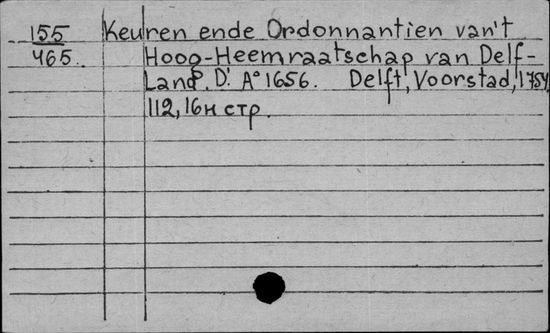 155 Keuren ende Ordonnantien van't
465. Hoog-Heemraatschap van Delf-
Land. D'. A° 1656. Delft, Voorstad, 1754,
112, 16н стр.